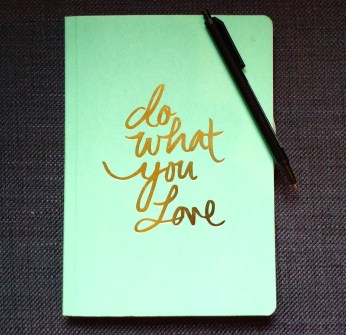 do
what
you
Love